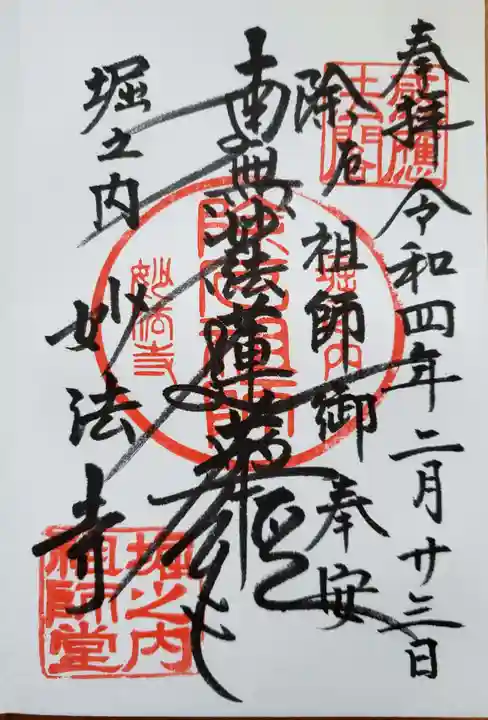 奉拝 令和四年二月廿三日
除厄 祖師御奉安
南無妙法蓮華経
堀之内 妙法寺
感應
堀之内
除厄祖師
妙法寺
堀之内
祖師堂